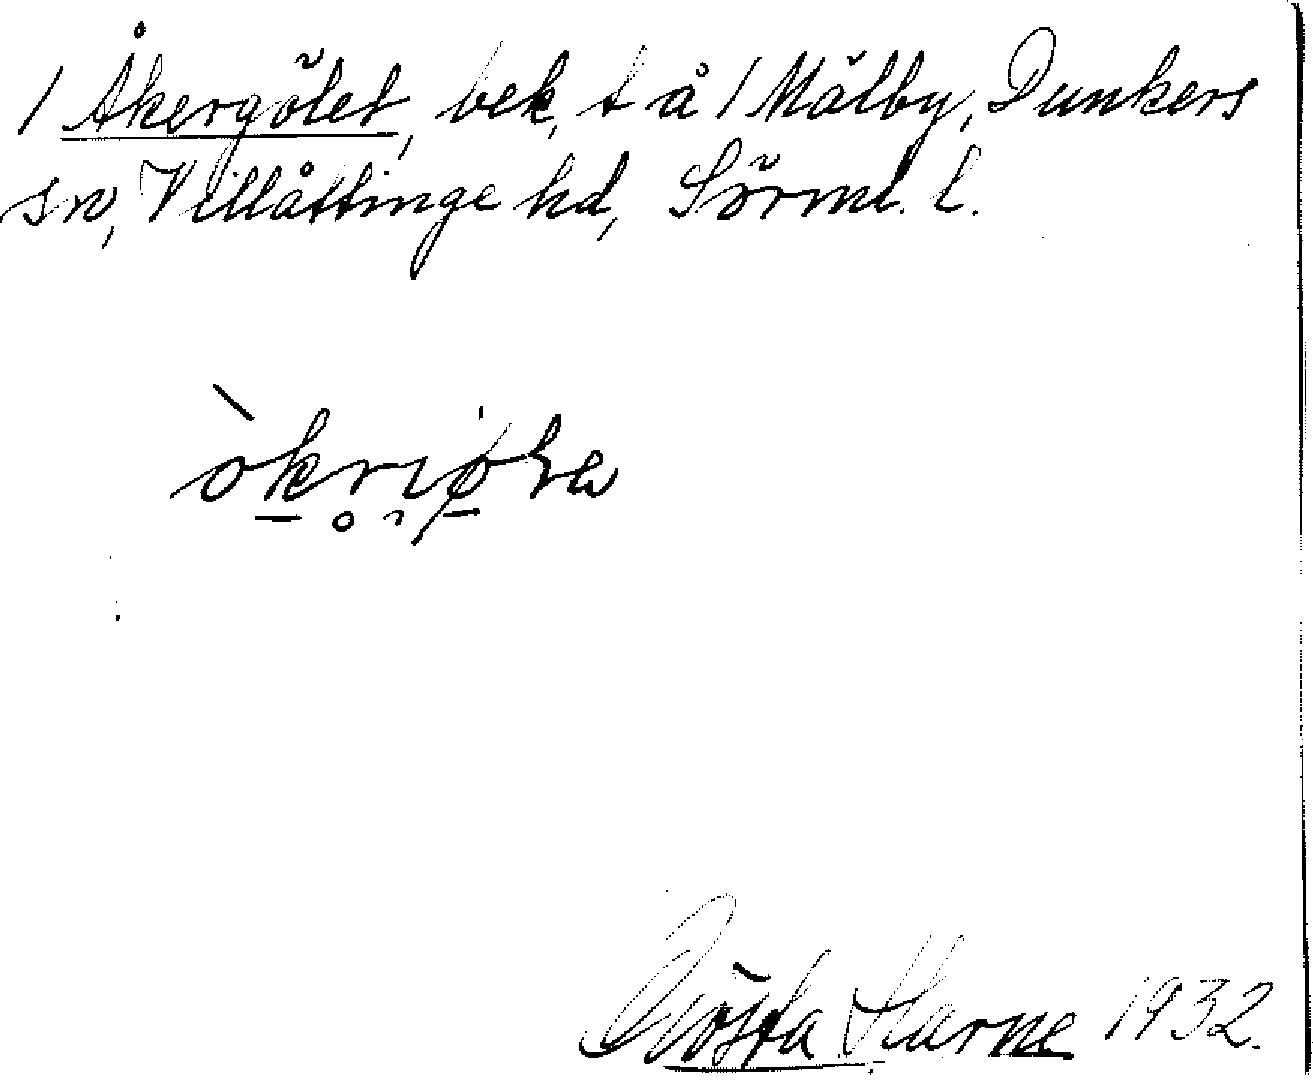 / Åkergölet, bek. t å / Mälby, Dunkers
sn, Villåttinge hd, Sörml. l.
Gösta Harne 1932.